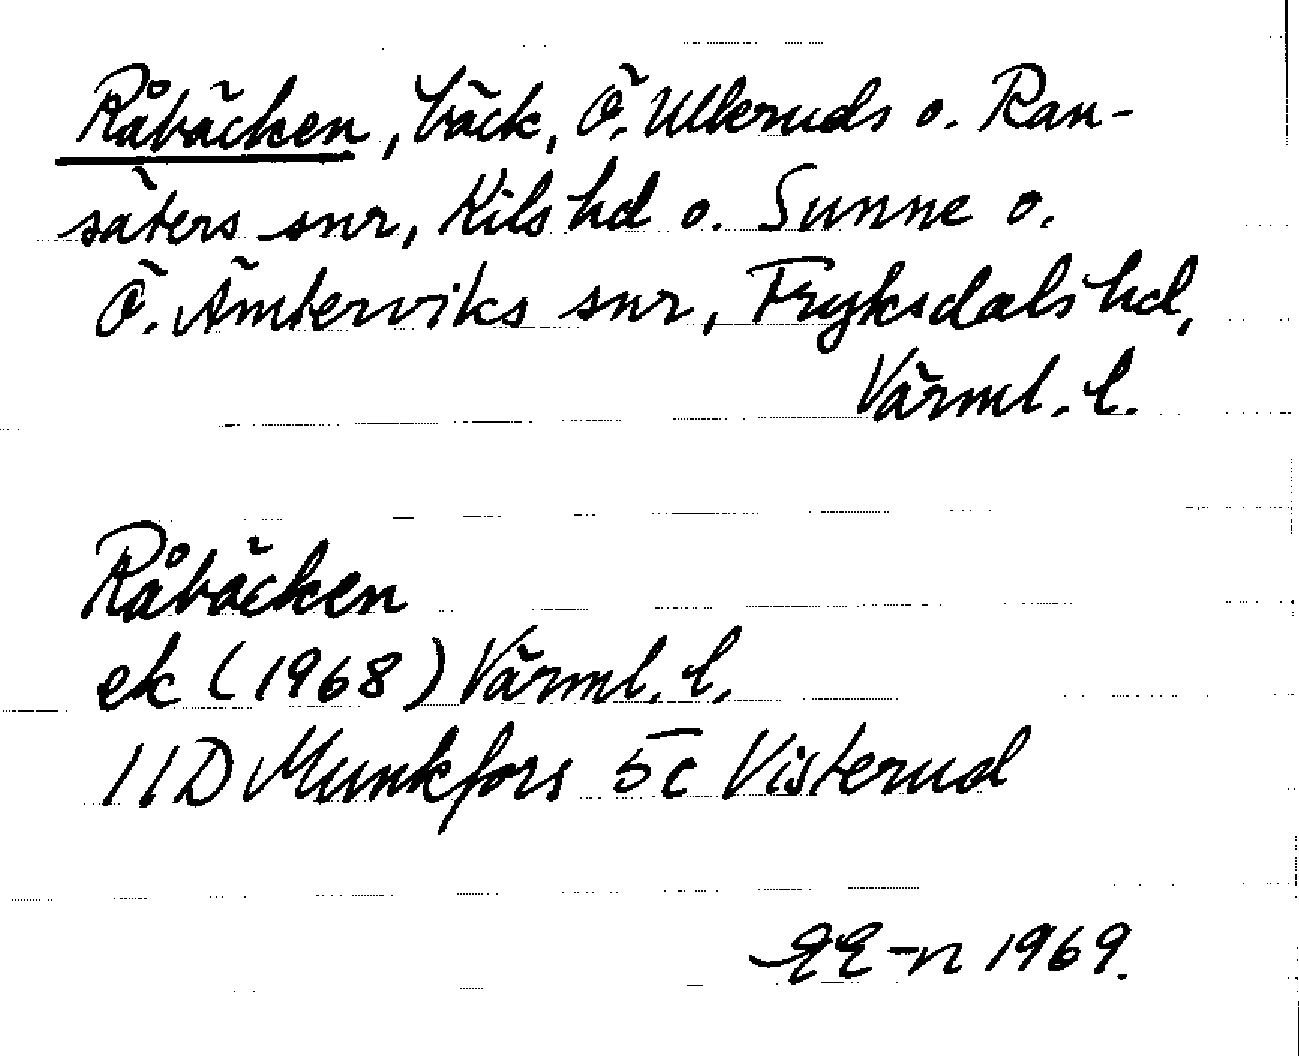 Råbäcken, bäck, Ö. Ulleruds o. Ran-
säters snr, Kils hd o. Sunne o.
Ö. Ämterviks snr, Fryksdals hd,
Värml. l.
Råbäcken
ek (1968) Värml. l.
11D Munkfors 5c Visterud
EE-n 1969.